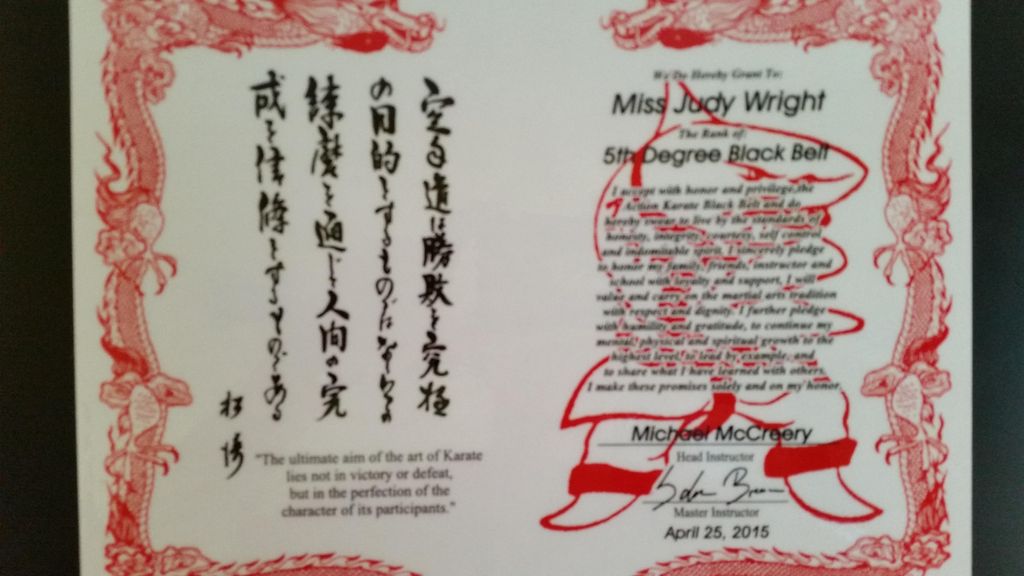 空手道は勝敗を究極
の目的とするものにはあらず
練磨を通じ人間の完
成を信條とするものである
"The ultimate aim of the art of Karate
lies not in victory or defeat,
but in the perfection of the
character of its participants."
We Do Hereby Grant To:
Miss Judy Wright
The Rank of:
5th Degree Black Belt
I accept with honor and privilege,the
Action Karate Black Belt and do
hereby swear to live by the standards of
honesty, integrity, courtesy, self control
and indomitable spirit. I sincerely pledge
to honor my family, friends, instructor and
school with loyalty and support. I will
value and carry on the martial arts tradition
with respect and dignity. I further pledge
with humility and gratitude, to continue my
mental, physical and spiritual growth to the
highest level, to lead by example, and
to share what I have learned with others.
I make these promises solely and on my honor.
Michael McCreery
Head Instructor
Master Instructor
April 25, 2015